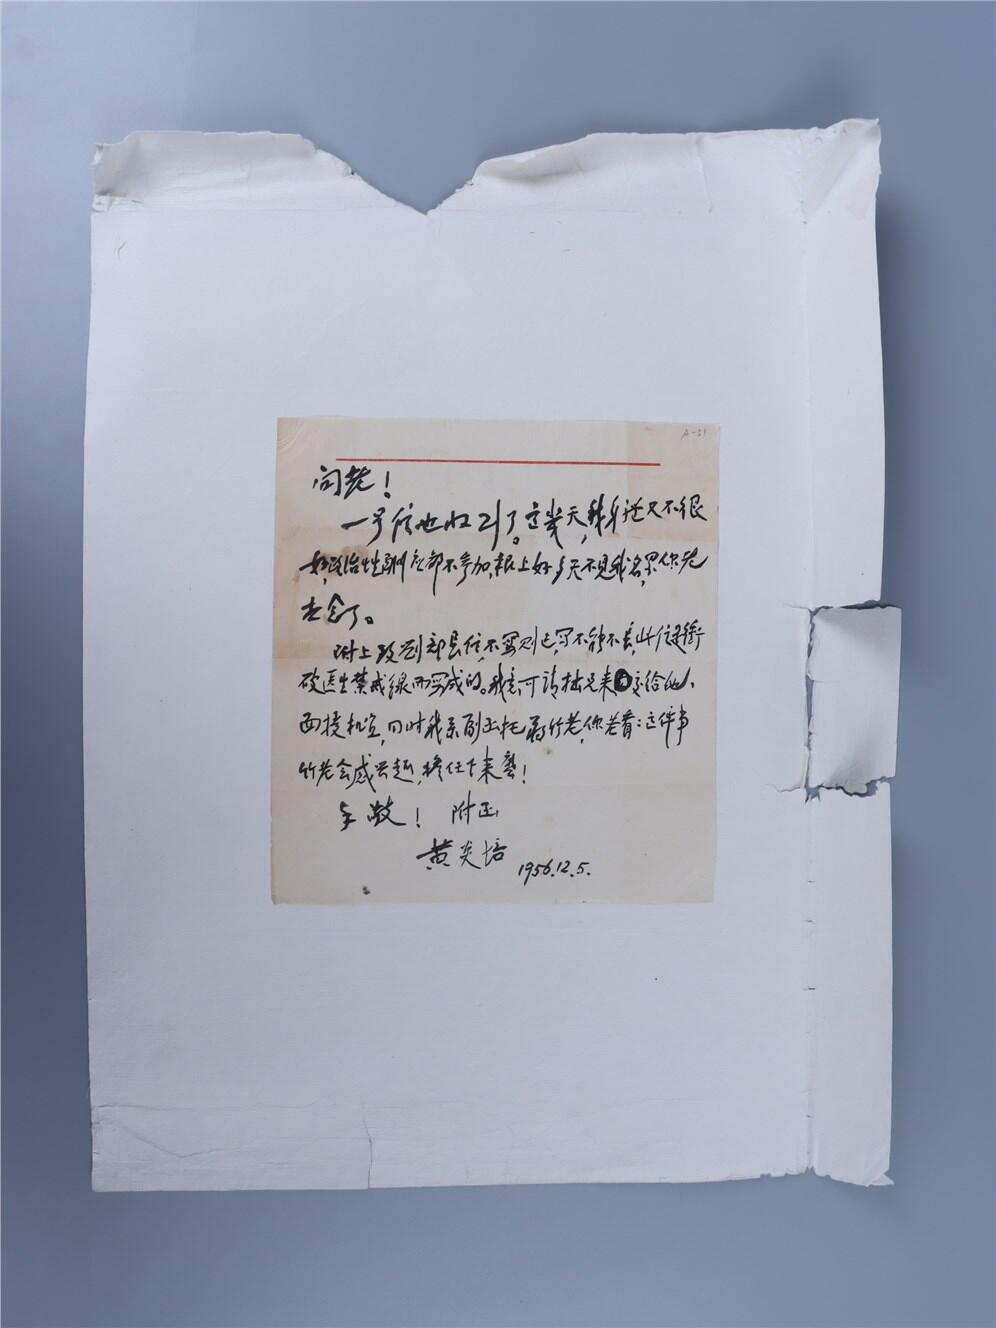 A-51
问老！
一号信也收到了。这几天，我身体又不很
好，政治性酬应都不参加，报上好多天不见我名，累你老
去念了。
附上致刘部长信，不写则已，写不能不长，此信是冲
破医生禁戒线而写成的。我意，可请拙兄来交给他，
面授机宜，同时我亲副函托蒋竹老，你老看：这件事
竹老会感兴趣，担任下来么！
手敬！ 附函
黄炎培
1956.12.5.